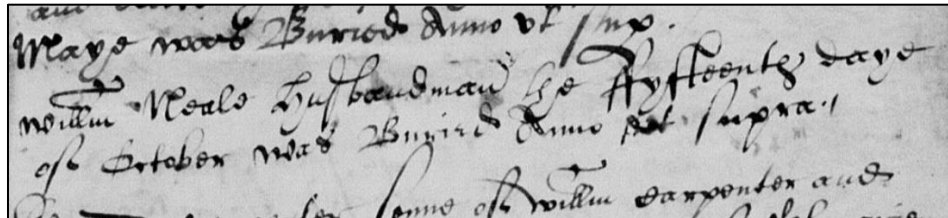 Maye was Buried Anno vt sup.
willm Neale Husbandman the ffyfteenth daye
of October was Buried Anno vt supra
sonne of willm Carpenter and